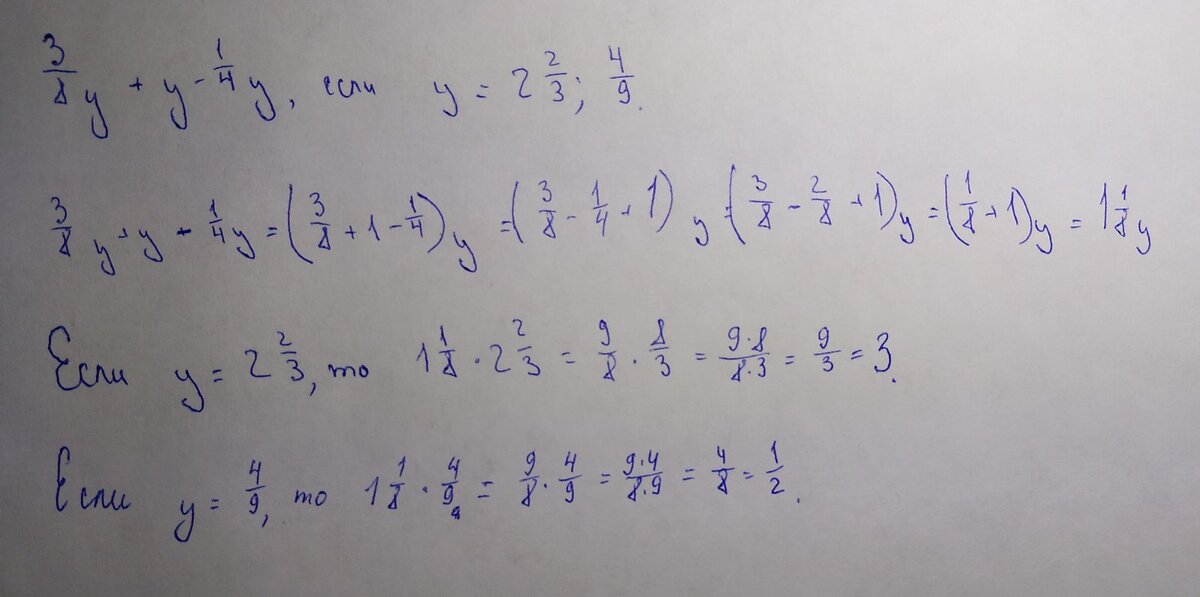 3/8 y + y - 1/4 y, если y = 2 2/3; 4/9.
3/8 y + y - 1/4 y = (3/8 + 1 - 1/4) y = (3/8 - 1/4 + 1) y = (3/8 - 2/8 + 1) y = (1/8 + 1) y = 1 1/8 y
Если y = 2 2/3, то 1 1/8 · 2 2/3 = 9/8 · 8/3 = 9·8/8·3 = 9/3 = 3.
Если y = 4/9, то 1 1/8 · 4/9 = 9/8 · 4/9 = 9·4/8·9 = 4/8 = 1/2.